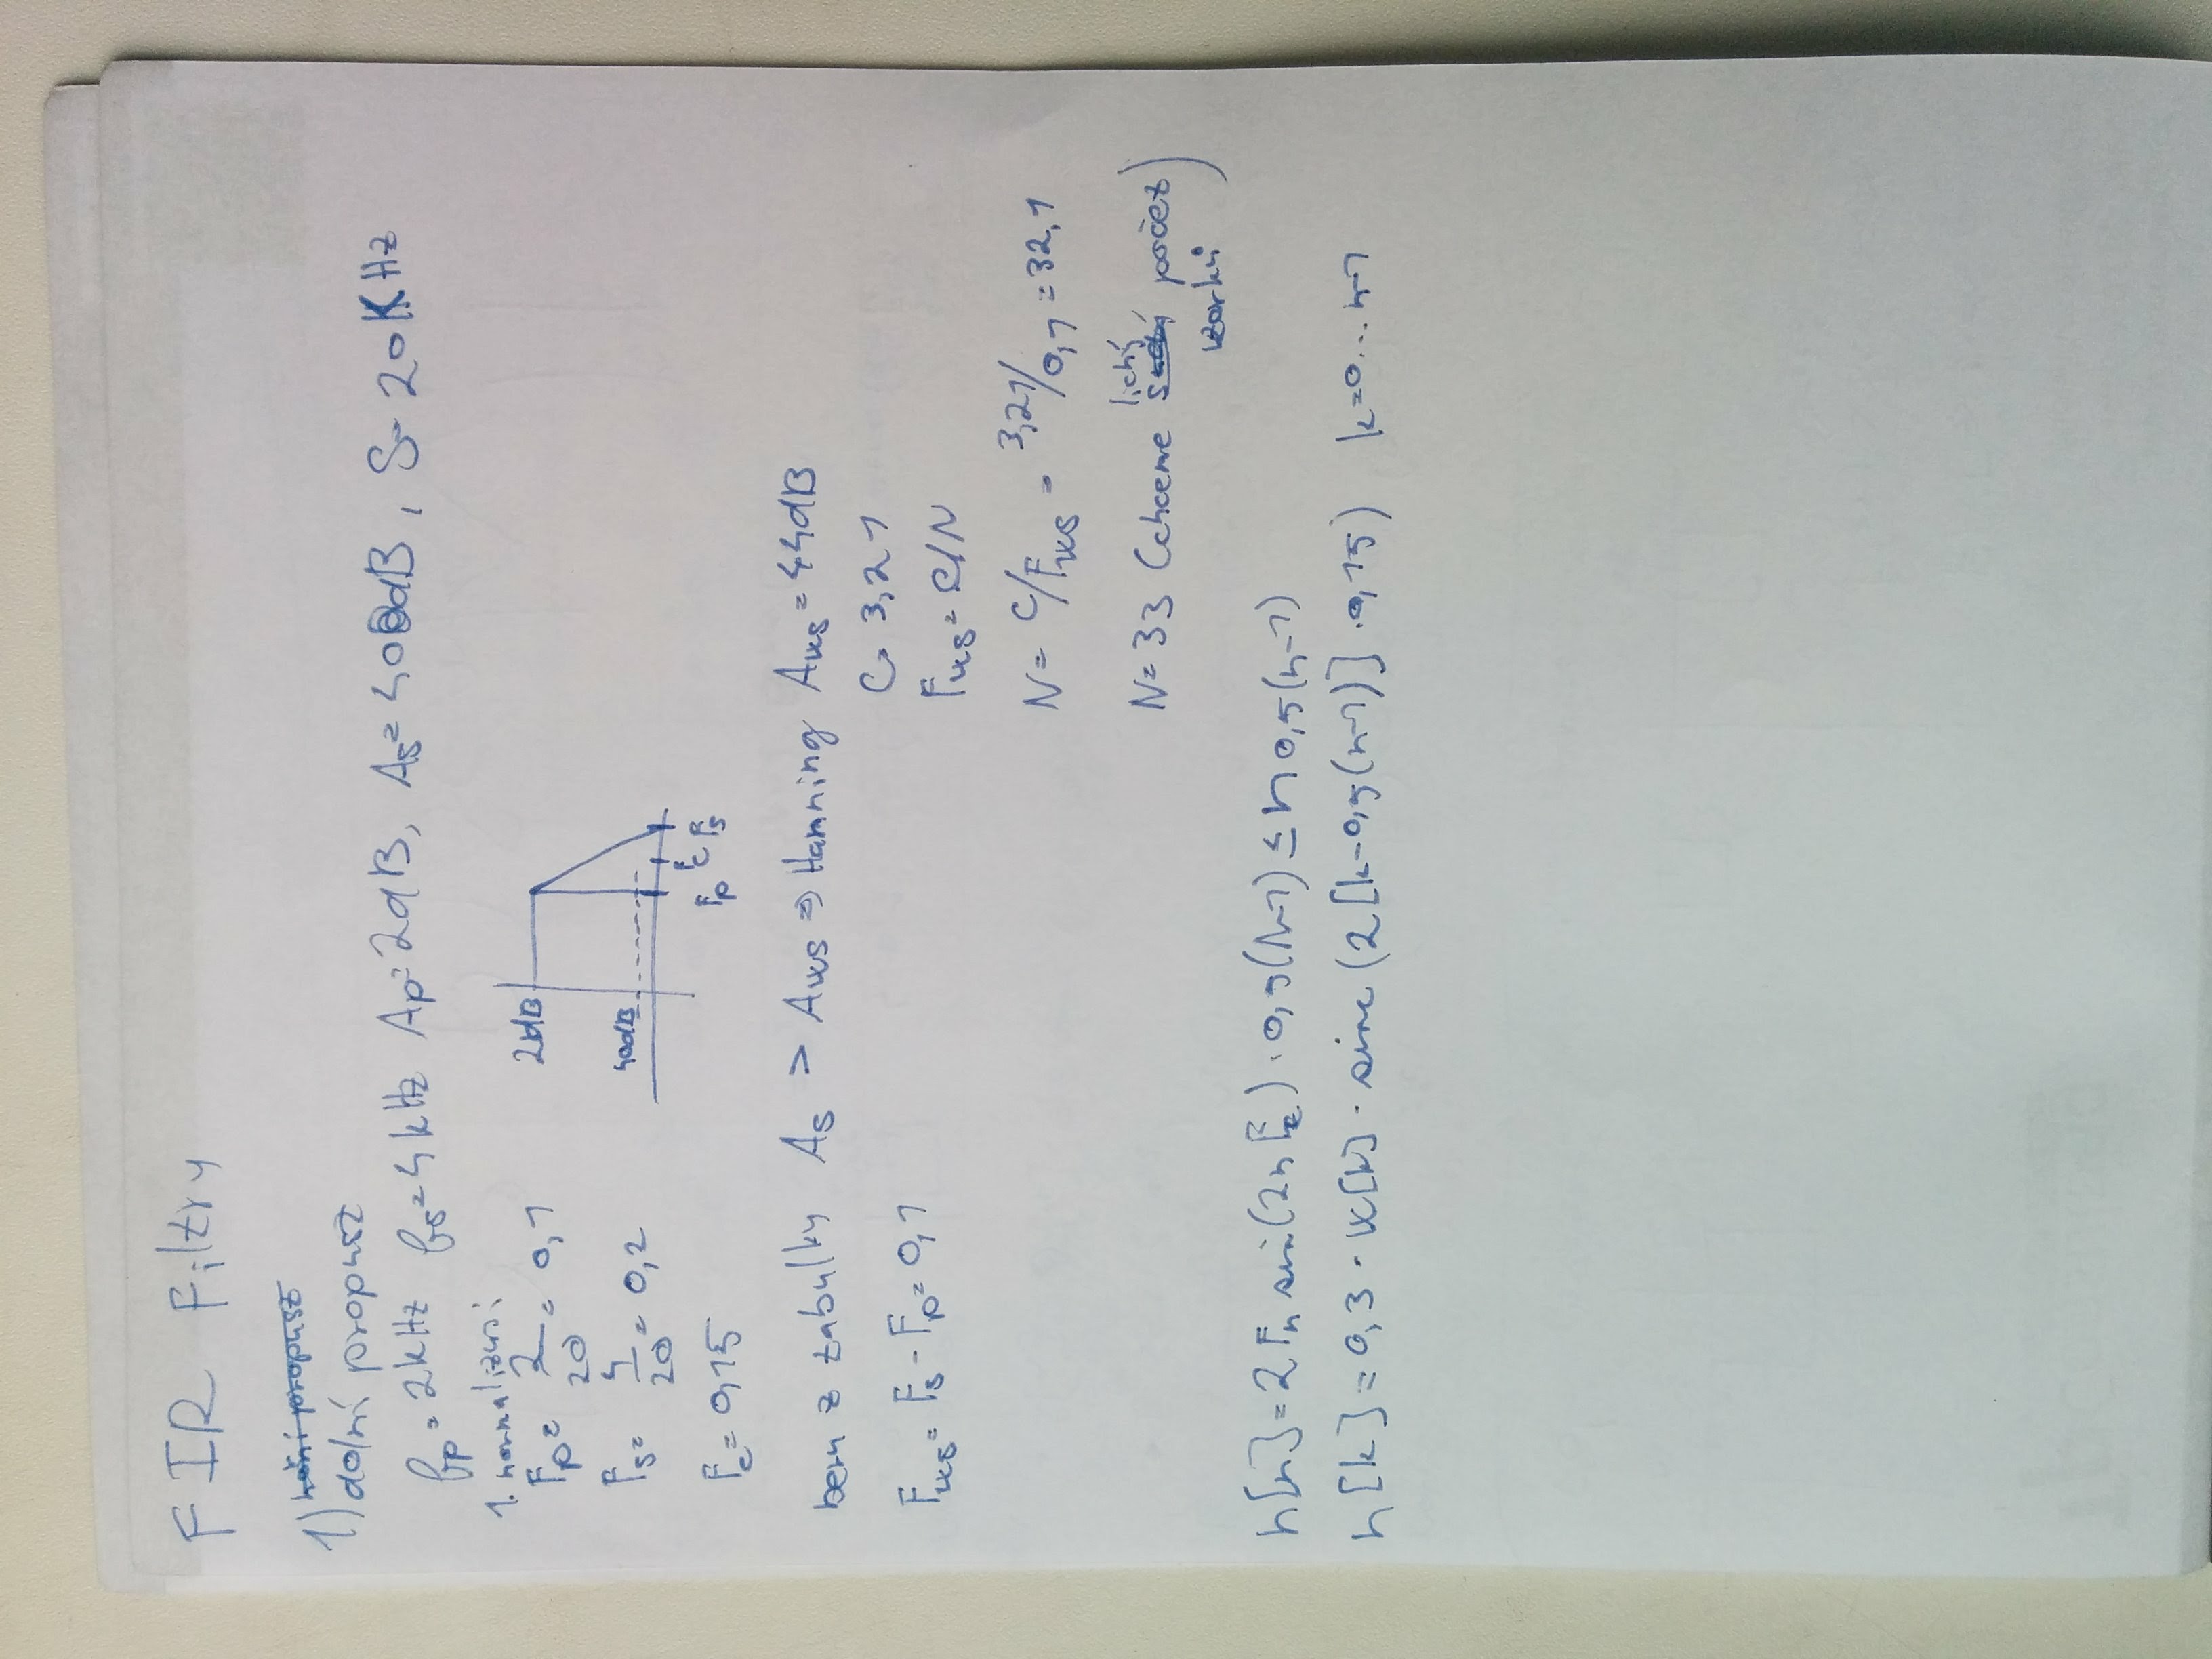 FIR Filtry
1) horní propust
dolní propust
fp = 2kHz fs = 4kHz Ap = 2dB, As = 40dB, S = 20KHz
1. normalizuji
Fp = 2/20 = 0,1
Fs = 4/20 = 0,2
Fc = 0,15
2dB
40dB
Fp Fc Fs
beru z tabulky As > Aws ⇒ Hanning Aws = 44dB
Fws = Fs - Fp = 0,1
C = 3,21
Fws = C/N
N = C/Fws = 3,21/0,1 = 32,1
N = 33 (chceme lichý počet
vzorků)
h[n] = 2Fn sinc(2nFc) . 0,5(N-1) ≤ n 0,5(n-1)
h[k] = 0,3 · w[k] · sinc(2[k-0,5(n-1)] . 0,15) k=0...n-1